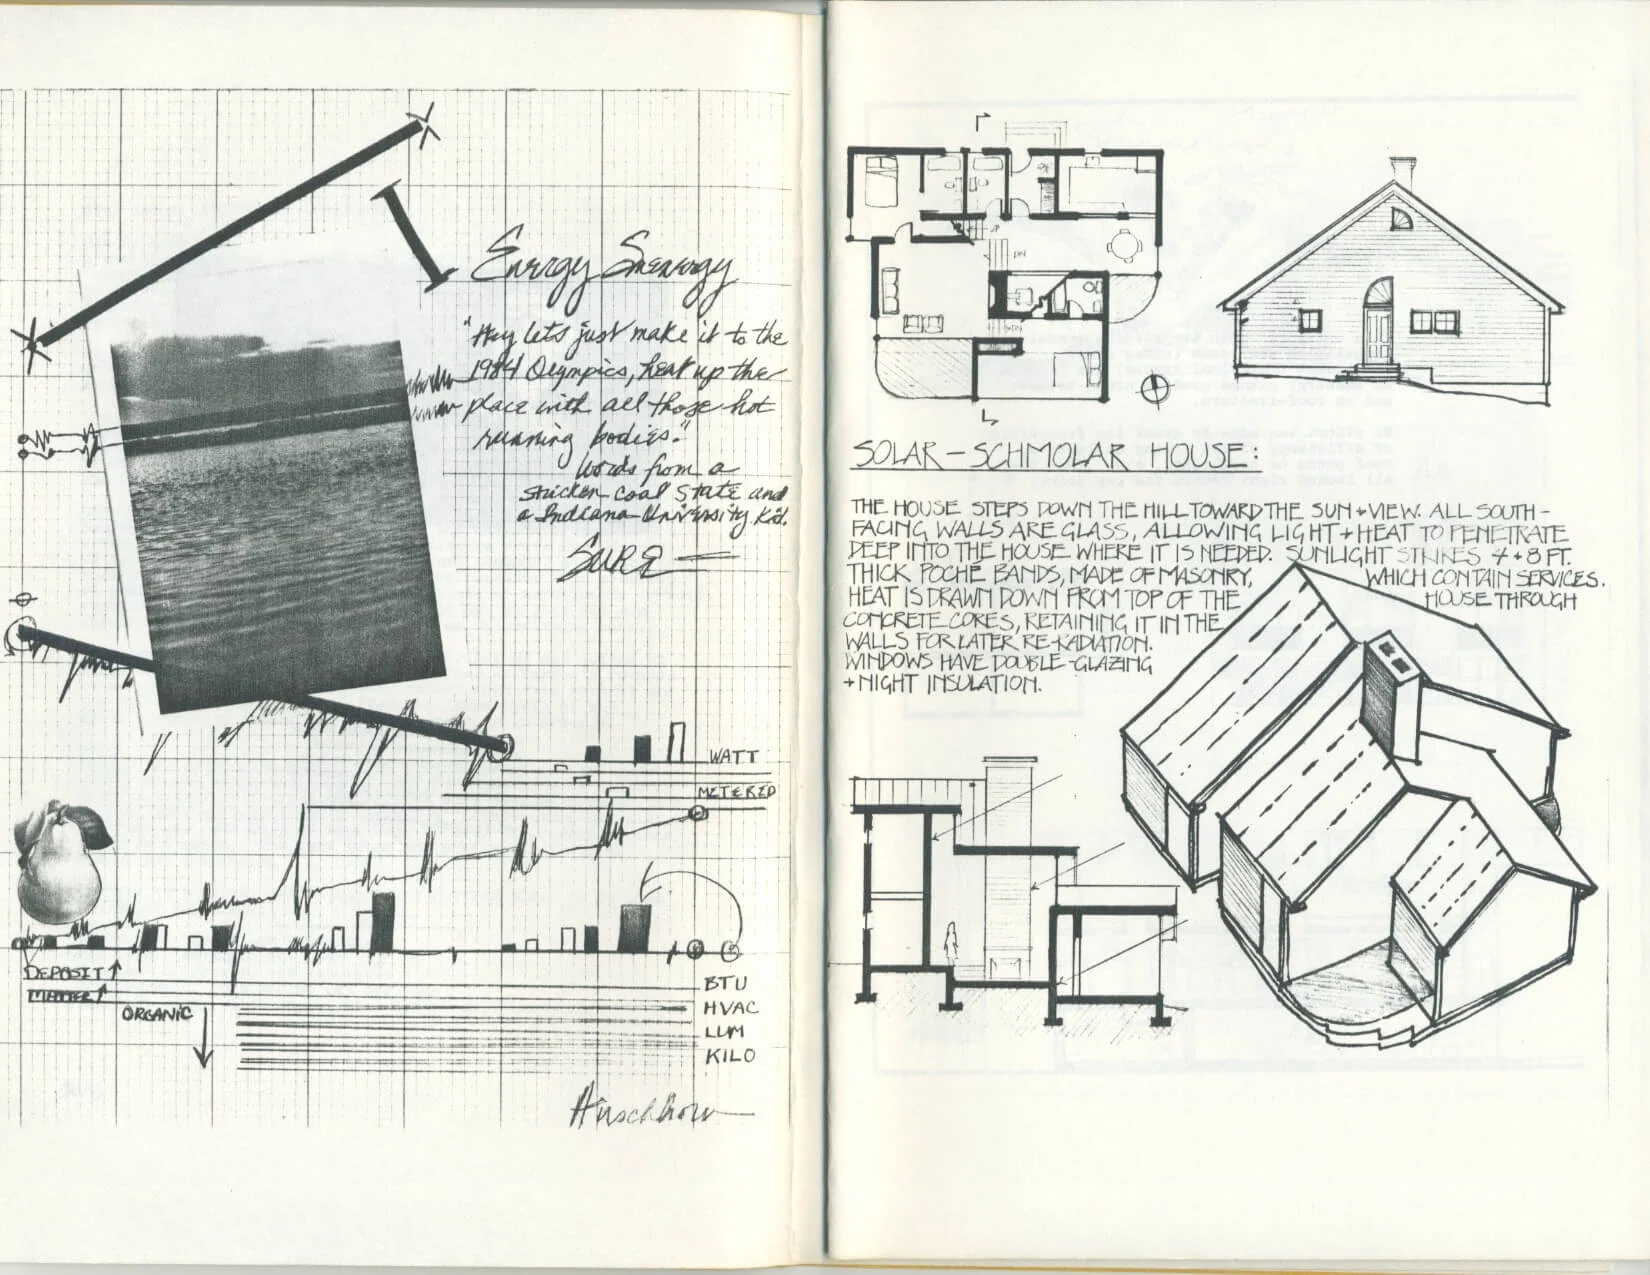 Energy Smenergy
"Hey lets just make it to the
1984 Olympics, heat up the
place with all those hot
running bodies."
Words from a
stricken coal state and
a Indiana University Kid.
SURE
WATT
METERED
DEPOSIT
MATTER
ORGANIC
BTU
HVAC
LUM
KILO
UP
DN
DN
SOLAR-SCHMOLAR HOUSE:
THE HOUSE STEPS DOWN THE HILL TOWARD THE SUN + VIEW. ALL SOUTH-
FACING WALLS ARE GLASS, ALLOWING LIGHT + HEAT TO PENETRATE
DEEP INTO THE HOUSE WHERE IT IS NEEDED. SUNLIGHT STRIKES 4 + 8 FT.
THICK POCHE BANDS, MADE OF MASONRY, WHICH CONTAIN SERVICES.
HEAT IS DRAWN DOWN FROM TOP OF THE HOUSE THROUGH
CONCRETE CORES, RETAINING IT IN THE
WALLS FOR LATER RE-RADIATION.
WINDOWS HAVE DOUBLE-GLAZING
+ NIGHT INSULATION.